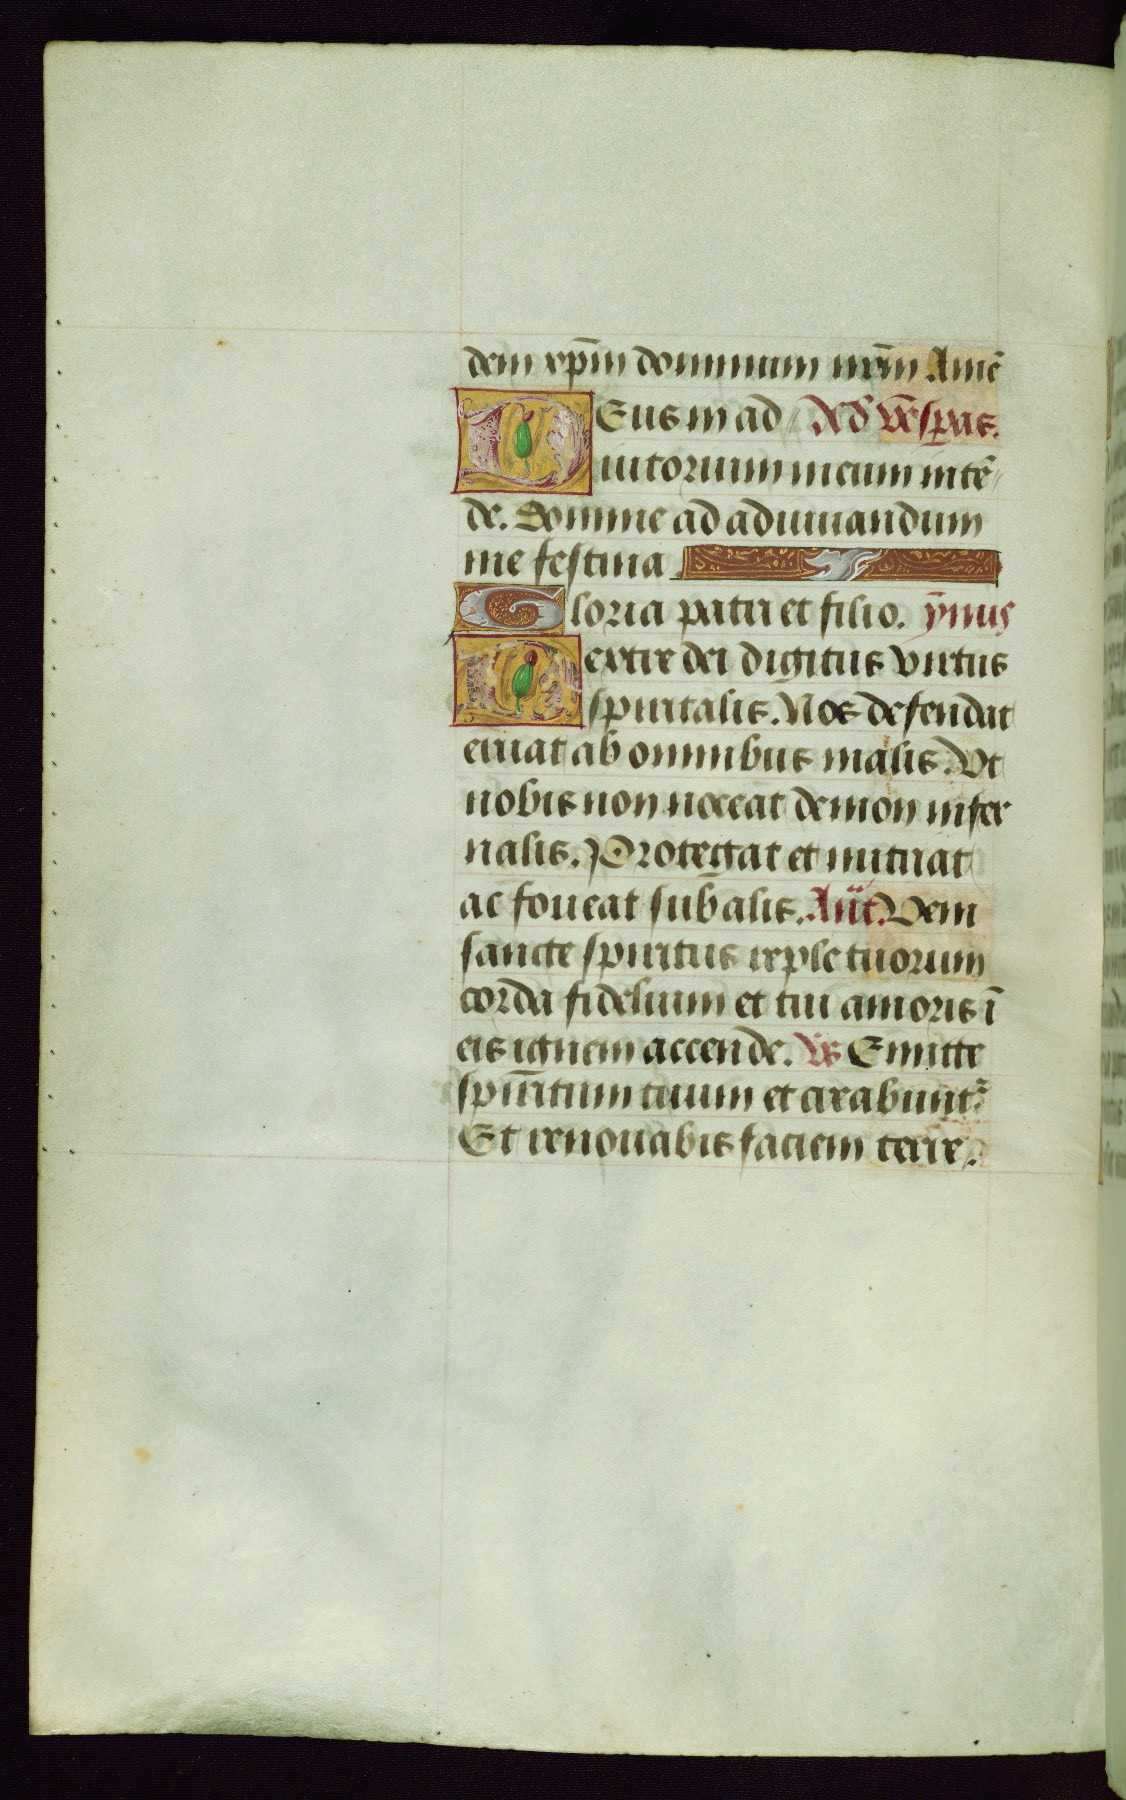 dem xp̄m dominum nr̄m Amē
DEus in ad Ad vēspas.
iutorium meum intē
de. Domine ad adiuuandum
me festina.
Gloria patri et filio. ȳnus
Dextre dei digitus virtus
spiritalis. Nos defendat
eruat ab omnibus malis. Vt
nobis non noceat demon infer
nalis. Protegat et nutriat
ac foueat sub alis. Añt. Veni
sancte spiritus reple tuorum
corda fidelium et tui amoris ī
eis ignem accende. Vs Emitte
spiritum tuum et creabunt᷑
Et renouabis faciem terre.